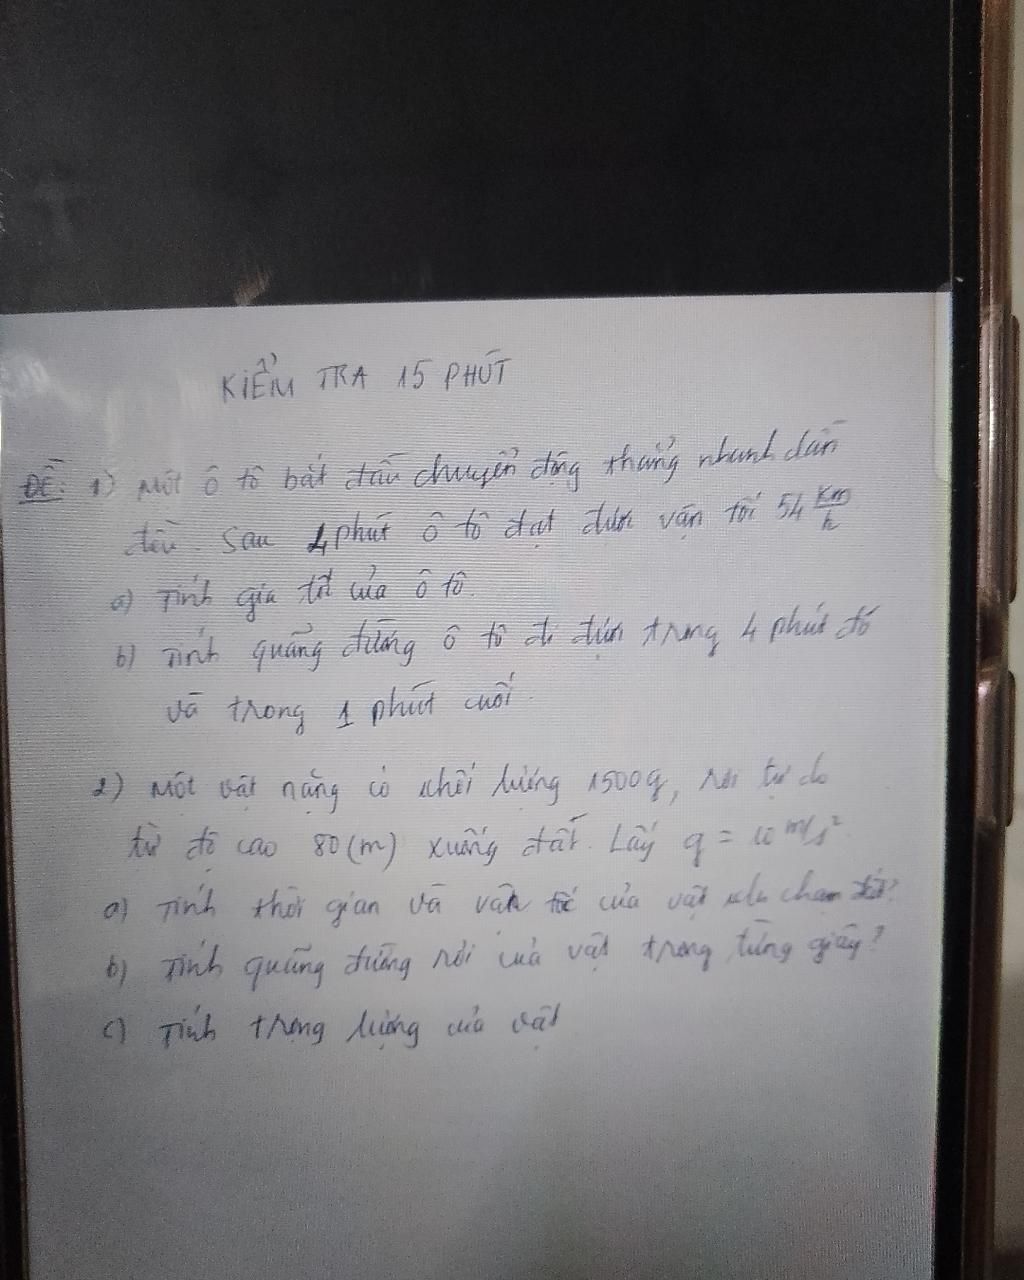 KIỂM TRA 15 PHÚT
ĐỀ: 1) Một ô tô bắt đầu chuyển động thẳng nhanh dần
đều. Sau 4 phút ô tô đạt được vận tốc 54 km/h
a) Tính gia tốc của ô tô.
b) Tính quãng đường ô tô đi được trong 4 phút đó
và trong 1 phút cuối.
2) Một vật nặng có khối lượng 1500g, rơi tự do
từ độ cao 80(m) xuống đất. Lấy g = 10 m/s²
a) Tính thời gian và vận tốc của vật khi chạm đất?
b) Tính quãng đường rơi của vật trong từng giây?
c) Tính trọng lượng của vật